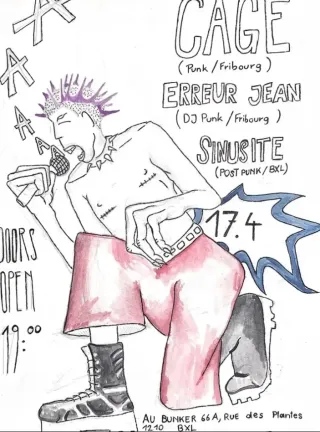 A
A
A
A
CAGE
(Punk/Fribourg)
ERREUR JEAN
(DJ Punk/Fribourg)
SINUSITE
(POST PUNK/BXL)
17.4
DOORS
OPEN
19:00
AU BUNKER 66A, RUE des Plantes
1210 BXL